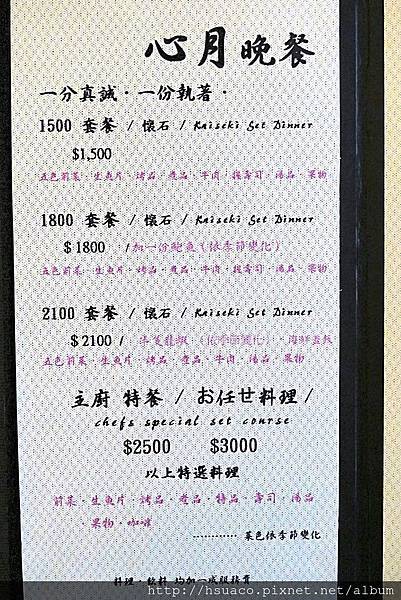 心月晚餐
一分真誠．一份執著．
1500 套餐 / 懷石 / Kaiseki Set Dinner
$1,500
五色前菜．生魚片．烤品．煮品．牛肉．握壽司．湯品．果物
1800 套餐 / 懷石 / Kaiseki Set Dinner
$1800 /加一份鮑魚(依季節變化)
五色前菜．生魚片．烤品．煮品．牛肉．握壽司．湯品．果物
2100 套餐 / 懷石 / Kaiseki Set Dinner
$2100 / 半隻龍蝦 (依季節變化)．海鮮蓋飯
五色前菜．生魚片．烤品．煮品．牛肉．湯品．果物
主廚 特餐 / お任せ料理 /
chefs special set course
$2500 $3000
以上特選料理
前菜．生魚片．烤品．煮品．特品．壽司．湯品
．果物．咖啡
............ 菜色依季節變化
料理．飲料 均加一成服務費
http://hsuaco.pixnet.net/album